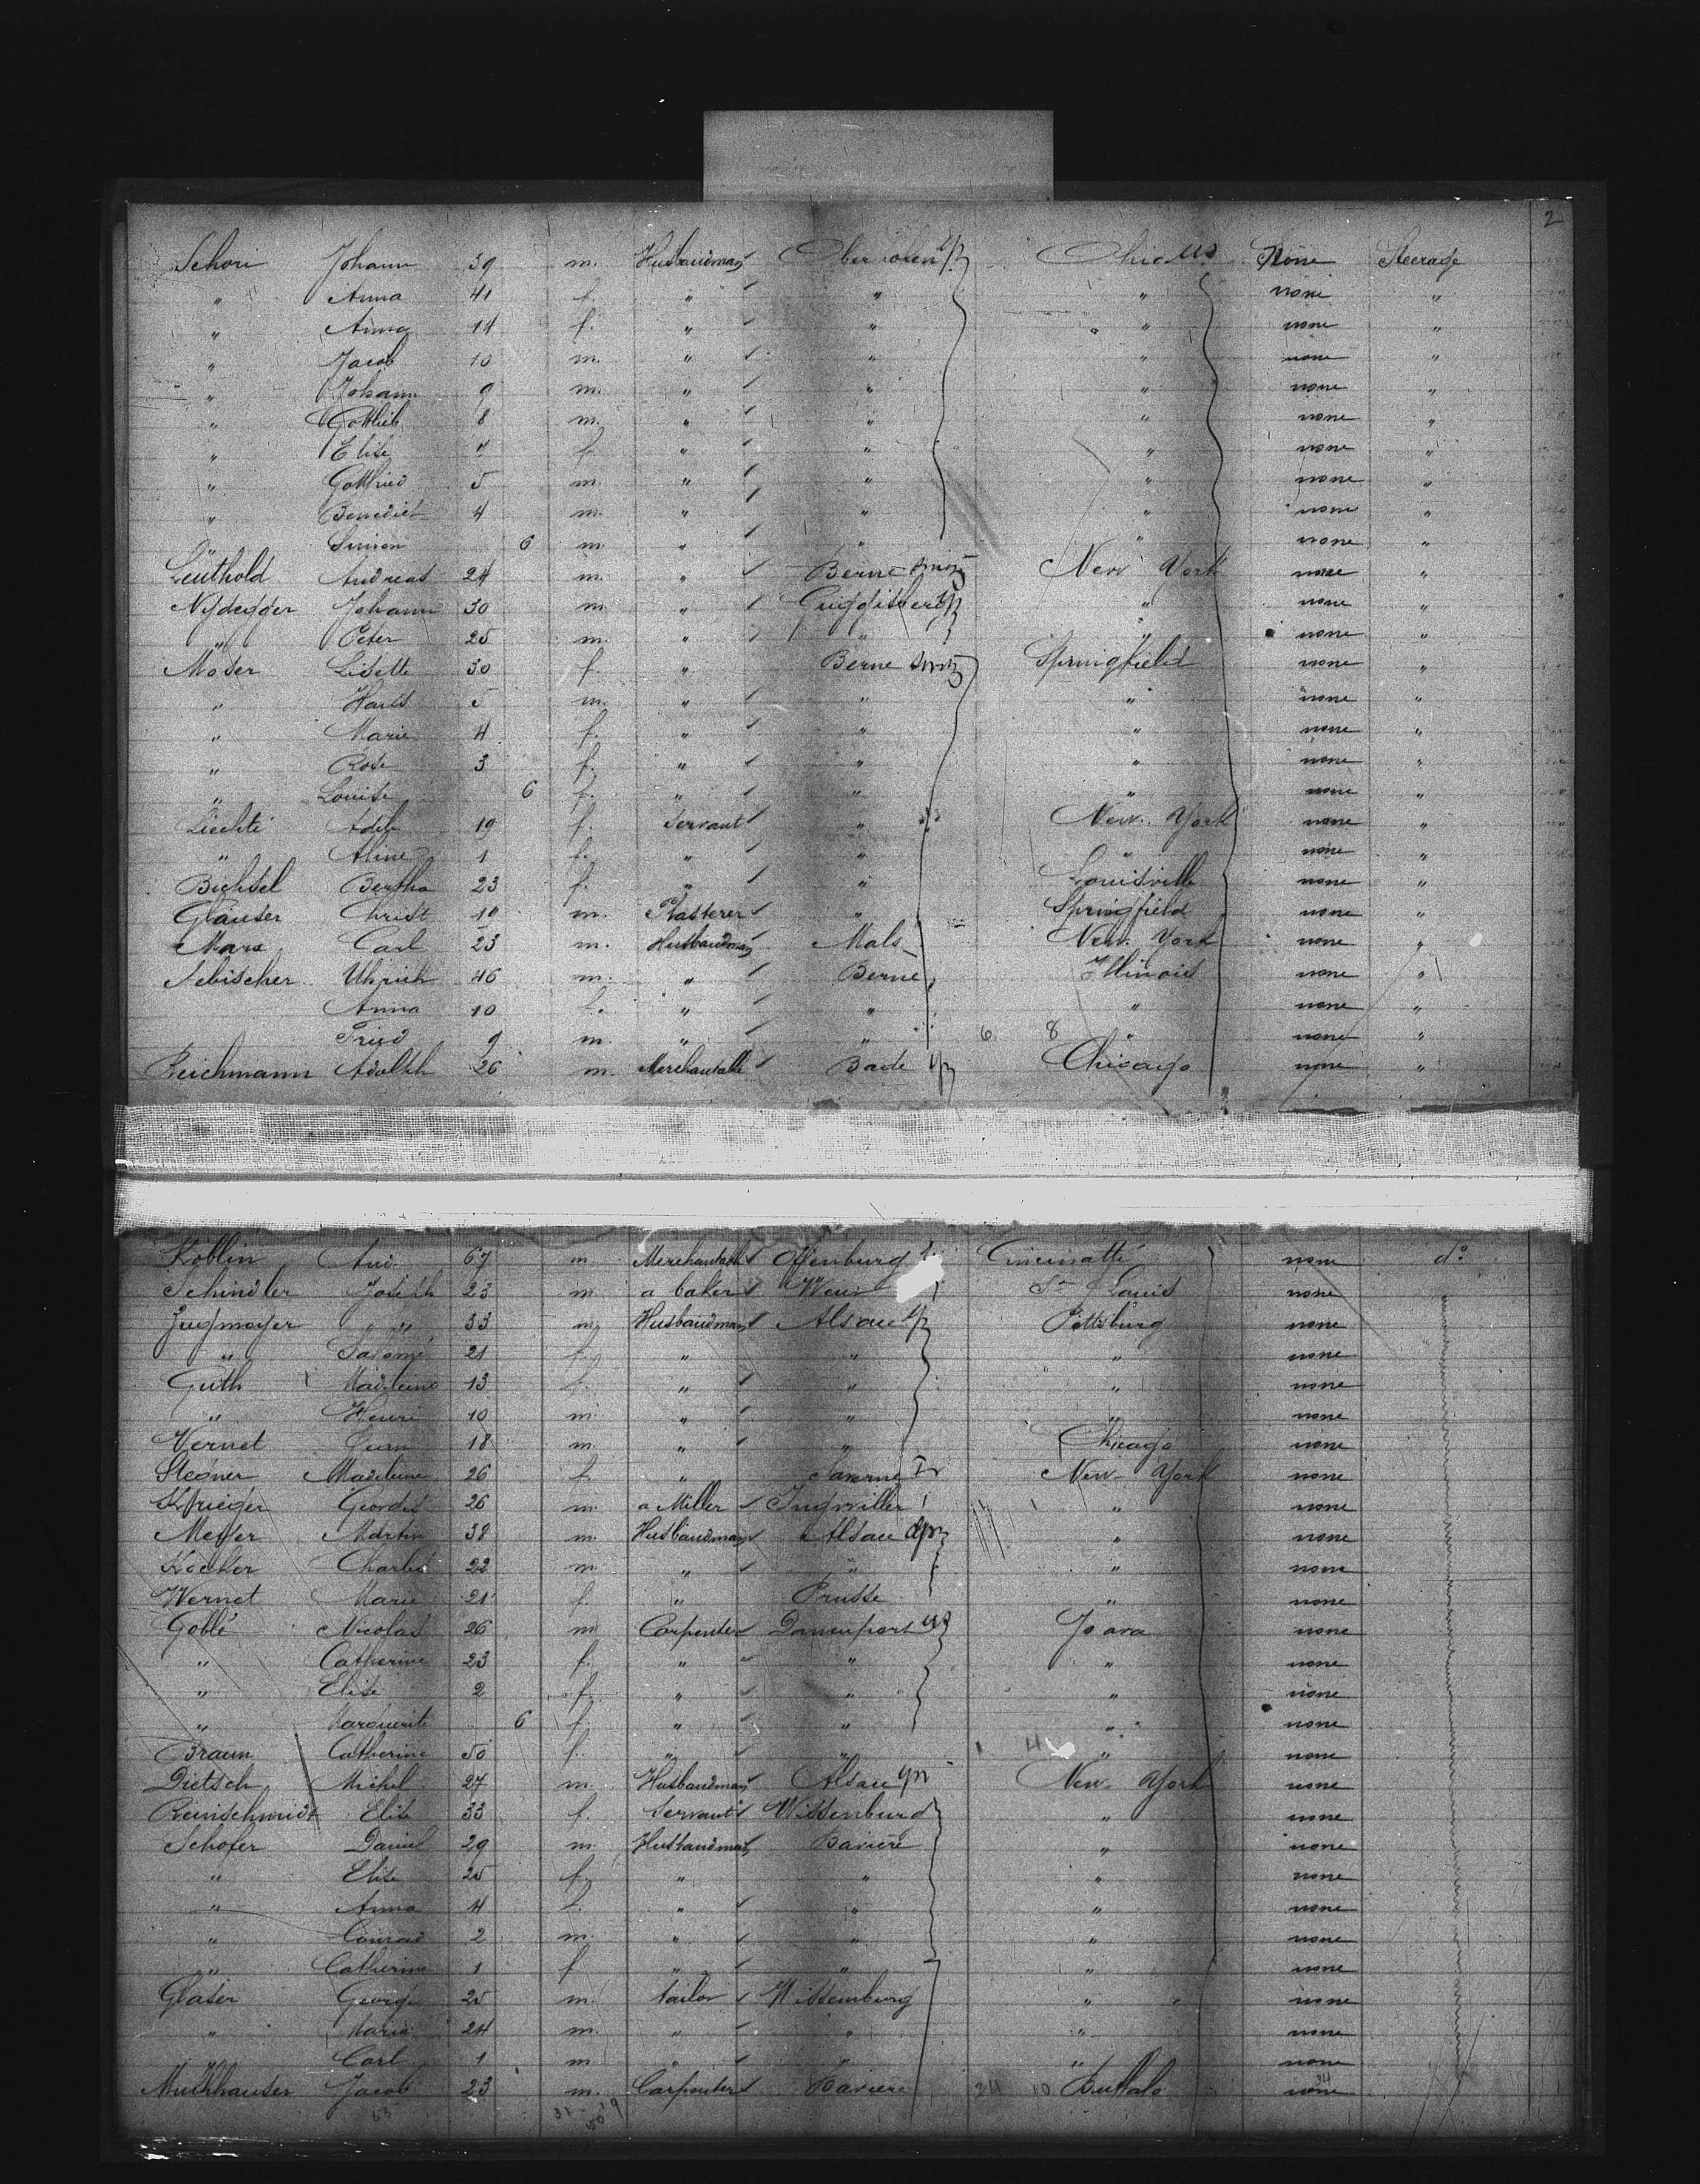 2
Schori Johann 39 m. Husbandman Ohio US None Steerage
" Anna 41 f. " " " none "
" Anna 14 f. " " " none "
" Jacob 10 m. " " " none "
" Johann 9 m. " " " none "
" Gottlieb 8 m. " " " none "
" Elise f. " " " none "
" Gottfried 5 m. " " " none "
" Benedict 4 m. " " " none "
" Simon 6 m. " " " none "
Leuthold Andreas 24 m. " Berne New York none "
Nydegger Johann 30 m. " " none "
" Peter 25 m. " " " none "
Moser Lisette 30 f. " Berne Springfield none "
" Hans 5 m. " " " none "
" Marie 4 f. " " " none "
" Rose 3 f. " " " none "
" Louise 6 f. " " " none "
Liechti Adele 19 f. Servant " New York none "
" Aline 1 f. " " " none "
Bichsel Bertha 23 f. " " Louisville none "
Glauser Christ 10 m. Plasterer " Springfield none "
Marx Carl 23 m. Husbandman Mals New York none "
Aebischer Ulrich 46 m. " Berne Illinois none "
Anna 10 f. " " " none "
Fried 9 m. " " 6 8 " none "
Reichmann Adolph 26 m. Bade Chicago none "
Koblin And. 67 m Offenburg Cincinatti none do
Schindler Joseph 23 m a baker St Louis none
Jugmayer " 33 m Husbandman Alsace Pittsburg none
" Salomé 21 f. " " " none
Guth Madeleine 13 f. " " " none
" Henri 10 m. " " " none
Vernet 18 m " " Chicago none
Stegner Madeleine 26 f " Saverne New York none
Krieger Georges 26 m. a Miller Ingwiller " none
Meyer Martin 38 m. Husbandman Alsace " none
Charles 22 m " " " none
Wernet Marie 21 f. " Prusse " none
Goble Nicolas 26 m Carpenter Davenport US Joava none
" Catherine 23 f. " " " none
" Elise 2 f. " " " none
" Marguerite 6 f. " " " none
Braun Catherine 50 f. " " 4 " none
Dietsch Michel 27 m. Husbandman Alsace New York none
Reinschmidt Elise 33 f. Servant Wissenburg " none
Schofer Daniel 29 m. Husbandman Baviere " none
" Elise 25 f. " " " none
" Anna 4 f. " " " none
" Conrad 2 m. " " " none
" Catherine 1 f " " " none
Glaser George 25 m. tailor Wissemburg " none
" Maria 24 m. " " " none
" Carl 1 m. " " " none
Mulhhauser Jacob 23 m. Carpenter Baviere 24 10 Buffalo none